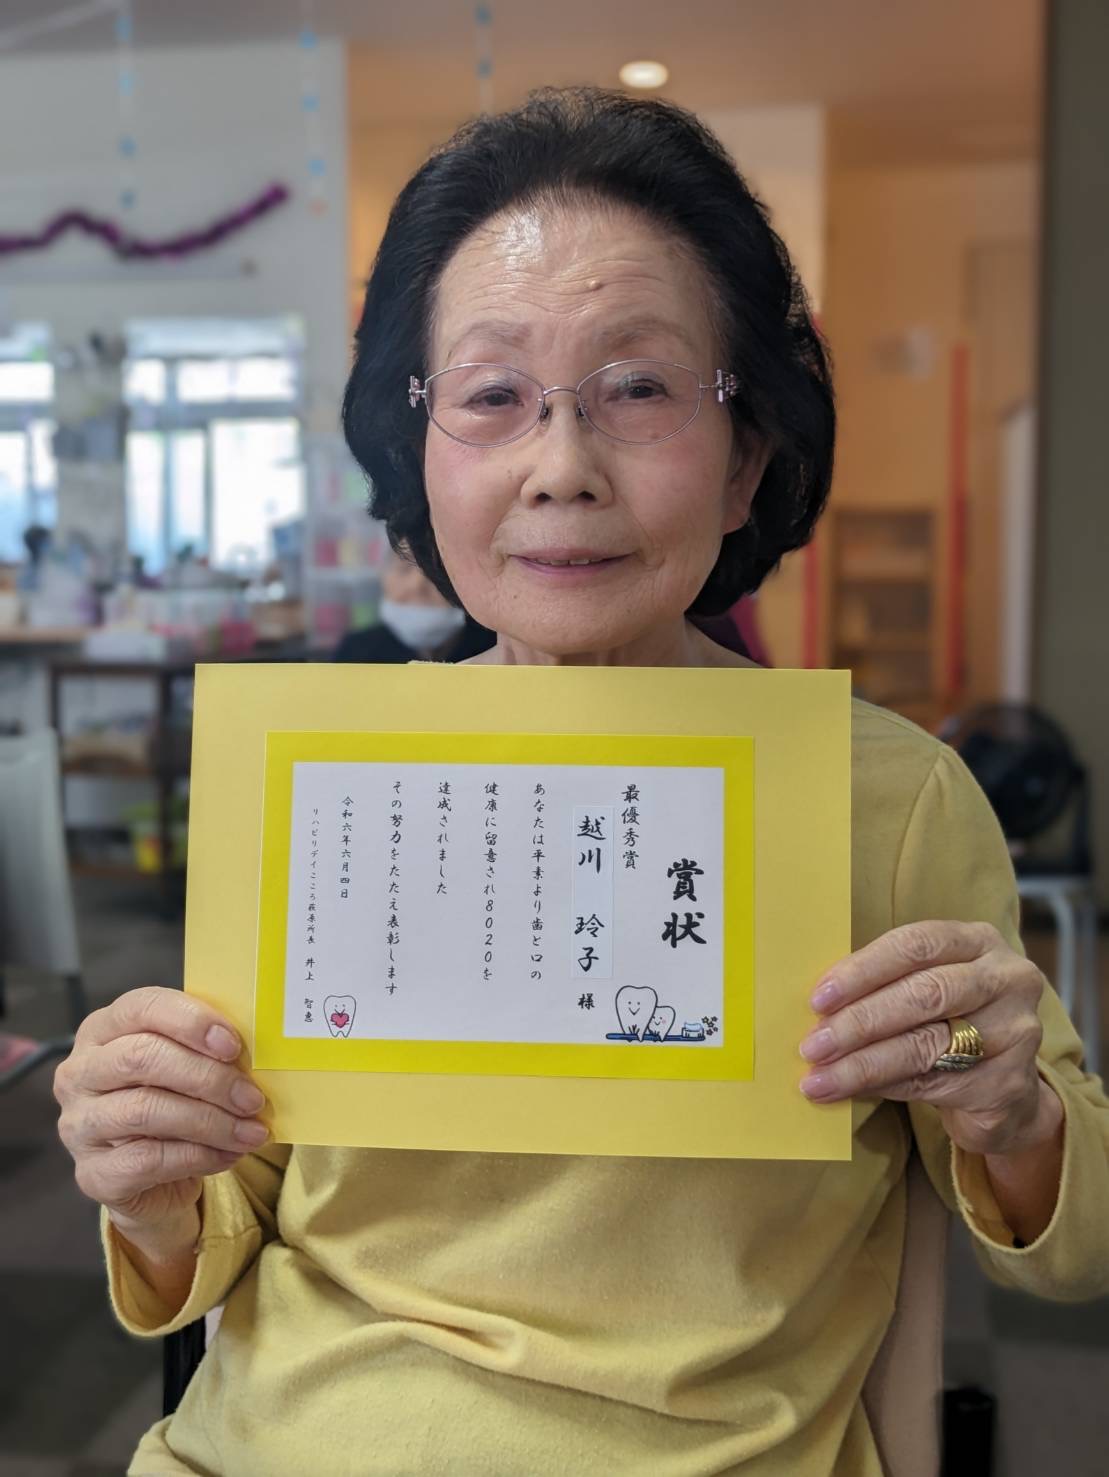 賞状
最優秀賞
越川 玲子 様
あなたは平素より歯と口の
健康に留意され8020を
達成されました
その努力をたたえ表彰します
令和六年六月四日
リハビリデイこころ萩原所長 井上 智恵